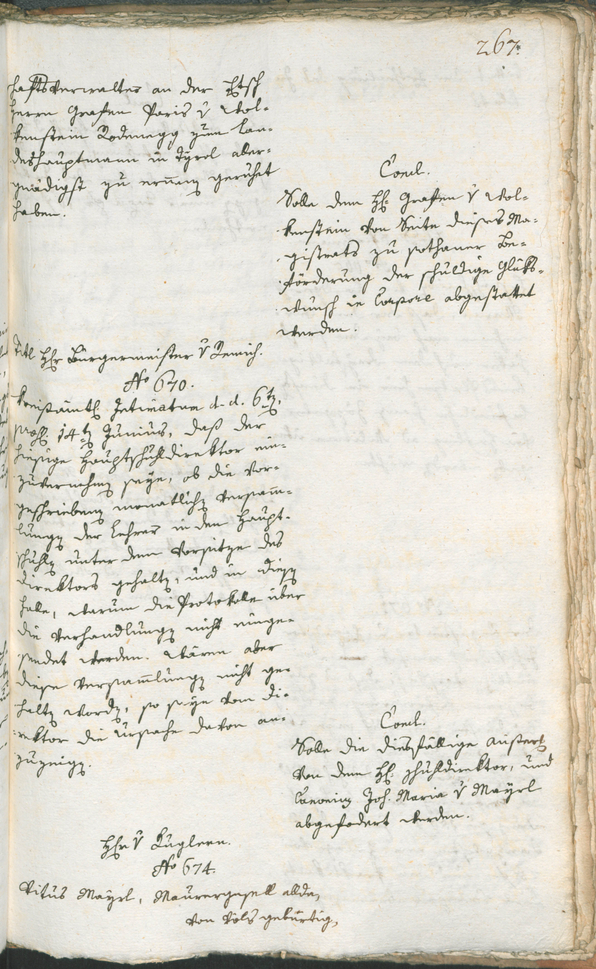 267.
haftsverwalter an der Etsch
Herrn Grafen Paris v Wol-
kenstein Rodenegg zum Lan-
deshauptmann in Tyrol aller-
gnädigst zu ernenen geruhet
haben.
Concl.
Solle dem H. Grafen v Wol-
kenstein von Seite dieses Ma-
gistrats zu sothaner Be-
förderung der schuldige Glüks-
wunsch in Corpore abgestattet
werden.
Titl Hr Bürgermeister v Remich.
No 670.
Kreisämtl Intimatum d. d. 6t,
praes 14t Junius, daß der
hiesige Hauptschuldirektor ein-
zuvernehmen seye, ob die vor-
geschriebenen monatlichen Versamm-
lungen der Lehrer in den Haupt-
schulen unter dem Vorsitze des
Direktors gehalten, und in diesem
Falle, warum die Protokolle über
die Verhandlungen nicht einge-
sendet werden. Wären aber
diese Versammlungen nicht ge-
halten worden, so seye vom Di-
rektor die Ursache davon an-
zuzeigen.
Concl.
Solle die diesfällige Äußerung
von dem H. Schuldirektor, und
Canonicus Joh. Maria v Mayrl
abgefodert werden.
Hr v Kuglern.
No 674.
Vitus Mayrl, Maurergesell allda,
von Vols gebürtig,